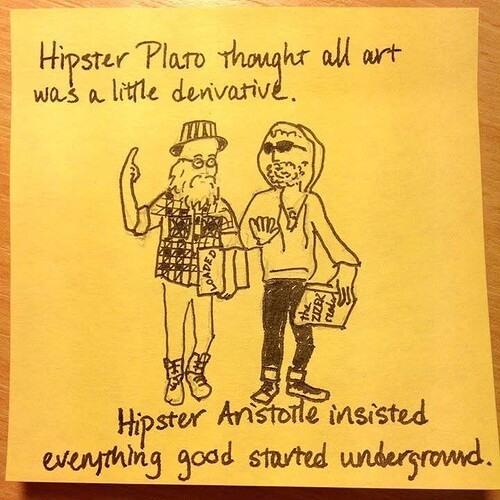 Hipster Plato thought all art
was a little derivative.
LOADED
the
ZIZEK
reader
Hipster Aristotle insisted
everything good started underground.